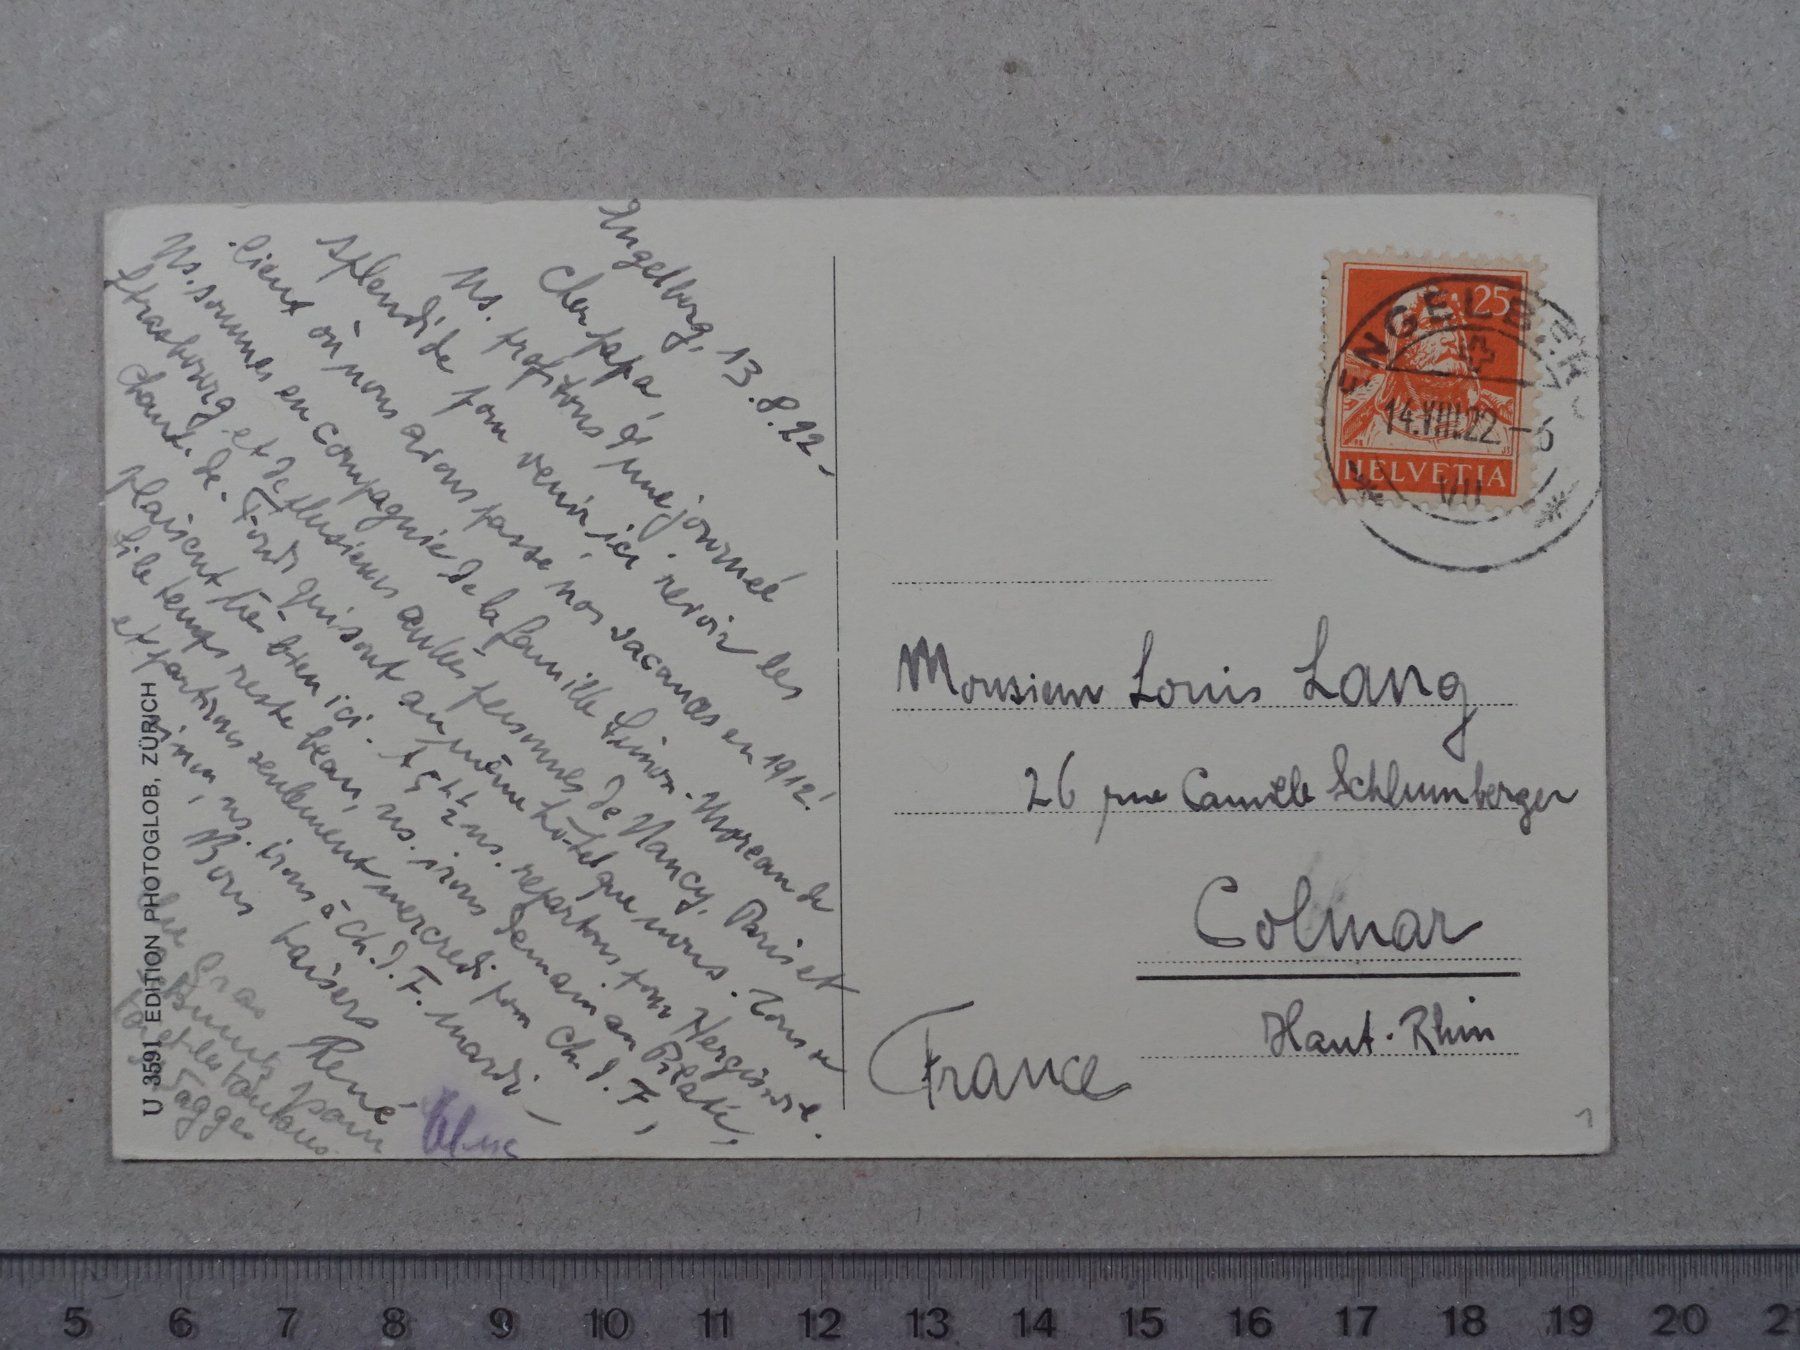 Engelberg, 13.8.22 -
Cher papa,
Ns. profitons d'une journée
splendide pour venir ici revoir les
lieux où nous avons passé nos vacances en 1912!
Ns. sommes en compagnie de la famille Simon-Moreau de
Strasbourg et de plusieurs autres personnes de Nancy, Paris et
Chaux. de. Fonds qui sont au même hôtel que nous. Tous se
plaisent très bien ici. A 5 h ½ ns. repartons pour Hergiswil.
Si le temps reste beau, ns. irons demain au Pilate,
et partirons seulement mercredi pour Ch. d. F.,
sinon, ns. irons à Ch. d. F. mardi -
Bons baisers René
pour
toi et les toutous
Taggeo
U 3591 EDITION PHOTOGLOB, ZÜRICH
25
HELVETIA
ENGELBERG
14.VIII.22.-6
VII
Monsieur Louis Lang
26 rue Camille Schlumberger
Colmar
Haut-Rhin
France
1
5 6 7 8 9 10 11 12 13 14 15 16 17 18 19 20 21